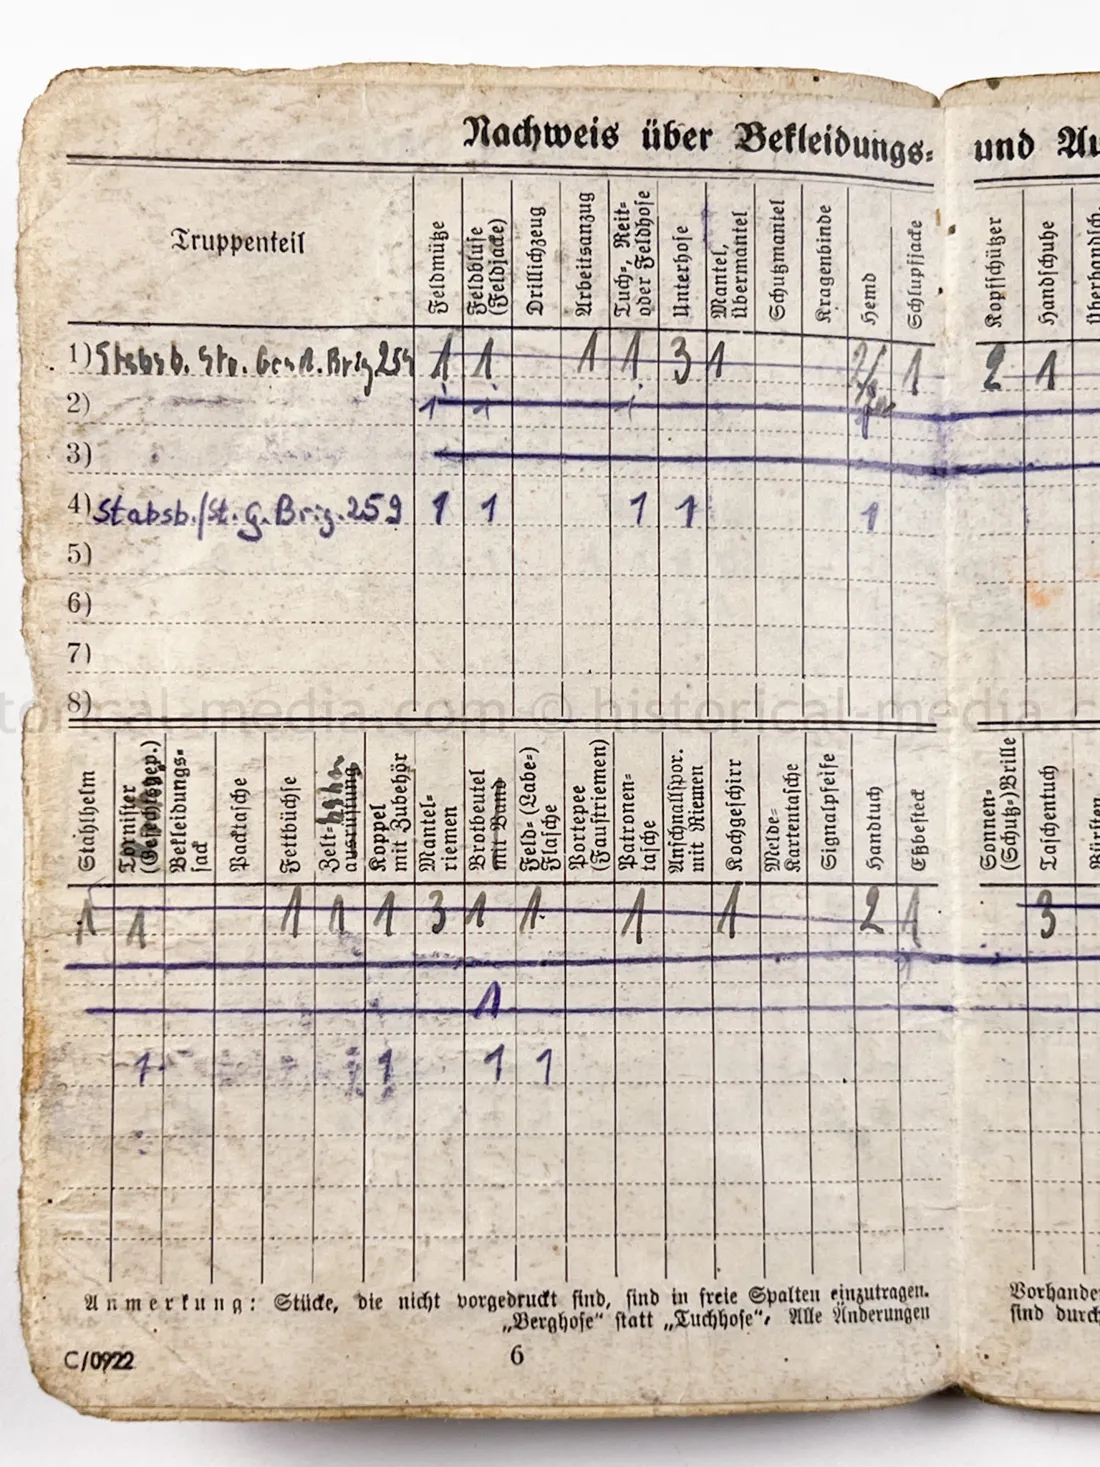 Nachweis über Bekleidungs- und Au
Truppenteil
Feldmütze
Feldbluse (Feldjacke)
Drillichzeug
Arbeitsanzug
Tuch-, Reit- oder Feldhose
Unterhose
Mantel, Übermantel
Schutzmantel
Kragenbinde
Hemd
Schlupfjacke
Kopfschützer
Handschuhe
Überhandsch.
1) Stabsb. Brig 259 1 1 1 1 3 1 1 2 1
2) 1 1 1
3)
4) Stabsb./St. G. Brig. 259 1 1 1 1 1
5)
6)
7)
8)
historical-media.com © historical-media.c
Stahlhelm
Tornister (Gefechtsgep.)
Bekleidungssack
Packtasche
Fettbüchse
Zelt-bahn ausrüstung
Koppel mit Zubehör
Mantelriemen
Brotbeutel mit Band
Feld- (Labe-) Flasche
Portepee (Faustriemen)
Patronentasche
Anschnallspor. mit Riemen
Kochgeschirr
Melde-Kartentasche
Signalpfeife
Handtuch
Eßbesteck
Sonnen- (Schutz-) Brille
Taschentuch
Bürsten
1 1 1 1 1 3 1 1 1 1 2 1 3
1
1 1 1 1
Anmerkung: Stücke, die nicht vorgedruckt sind, sind in freie Spalten einzutragen. Vorhande
„Berghose“ statt „Tuchhose“. Alle Änderungen sind durch
C/0922
6